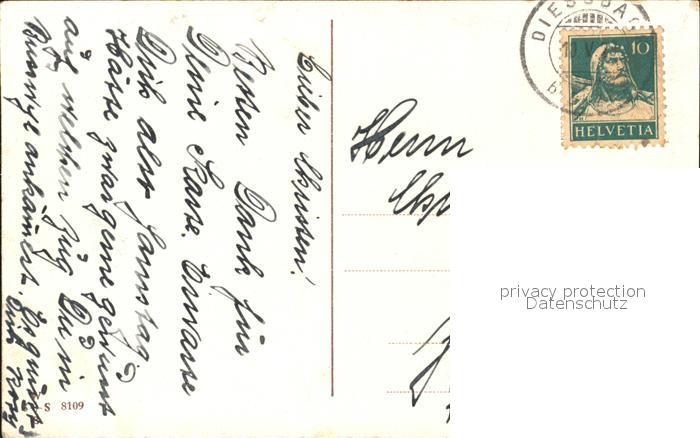 Lieber Christen!
Besten Dank für
Deine Karte. Erwarte
Dich also Samstag.
Hätte zwar gerne gewusst
auf welchen Zug Du in
Busswyl ankommst. Es grüsst
Dich
Herrn
DIESSBACH
10
HELVETIA
privacy protection
Datenschutz
S 8109